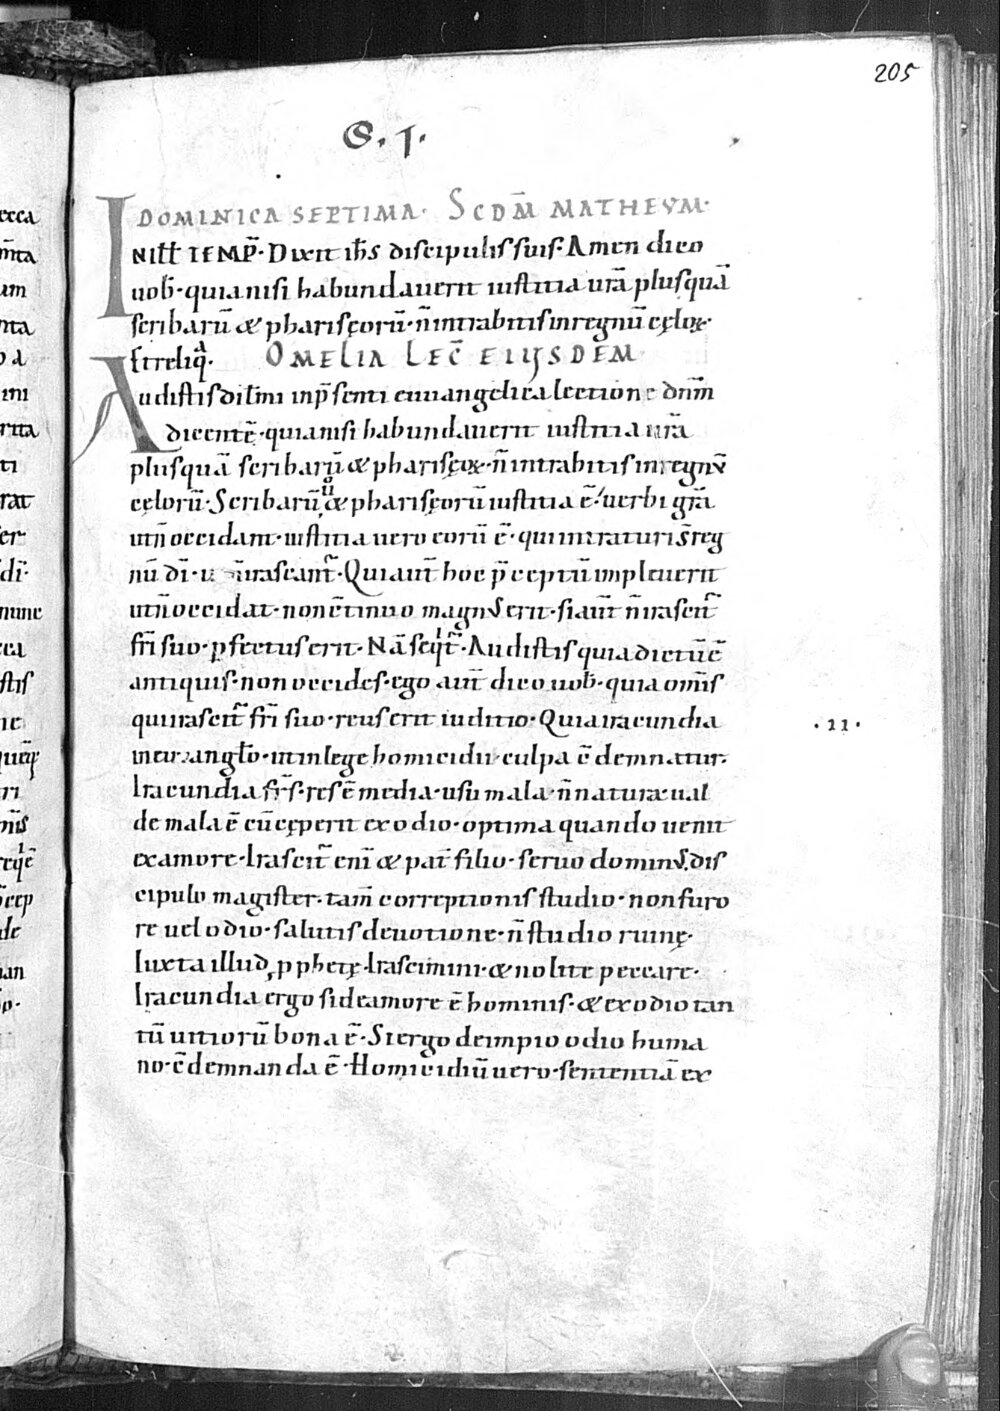 205
S. I.
DOMINICA SEPTIMA. SCDM̄ MATHEVM.
INILł TEMP̄. Dixit ih̄s discipulis suis. Amen dico
uob̄. quia nisi habundauerit iustitia ur̄a plusquā
scribarū & phariseorū. n̄ intrabitis in regnū cęloꝝ.
Et reliqᵃ. OMELIA LEC̄ EIUSDEM
Audistis dil̄mi in p̄senti euuangelica lectione dn̄m
dicentē. quia nisi habundauerit iustitia ur̄a
plusquā scribarū & pharisęoꝝ. n̄ intrabitis in regnū
cęlorū. Scribarū uo & pharisęorū iustitia ē. uerbi gr̄a
ut n̄ occidant. iustitia uero eorū ē. qui intraturi s̄ reg
nū dī. n̄ irascant̄. Qui aut̄ hoc p̄ceptū impleuerit
ut n̄ occidat. non c̄tinuo magnus erit. si aut̄ n̄ irascit̄
fr̄i suo. ꝑfectus erit. Nā seqⁱt̄. Audistis quia dictū ē
antiquis. non occides. ego aut̄ dico uob̄. quia om̄s
qui irascit̄ fr̄i suo. reus erit iuditio. Quia iracundia
.II.
in euuangl̄o. ut in lege homicidii culpa ē demnatur.
Iracundia fr̄s. res ē media. usu mala. n̄ natura. ual
de mala ē cū cęperit ex odio. optima quando uenit
ex amore. Irascit̄ enī & pat̄ filio. seruo dominus. dis
cipulo magister. tam̄ correptionis studio. non furo
re uel odio. salutis deuotione. n̄ studio ruinę.
Iuxta illud ꝓphetę. Irascimini. & nolite peccare.
Iracundia ergo si de amore ē hominis. & ex odio tan
tū uitiorū bona ē. Si ergo de impio odio huma
no. c̄demnanda ē. Homicidiū uero. sententiā ex